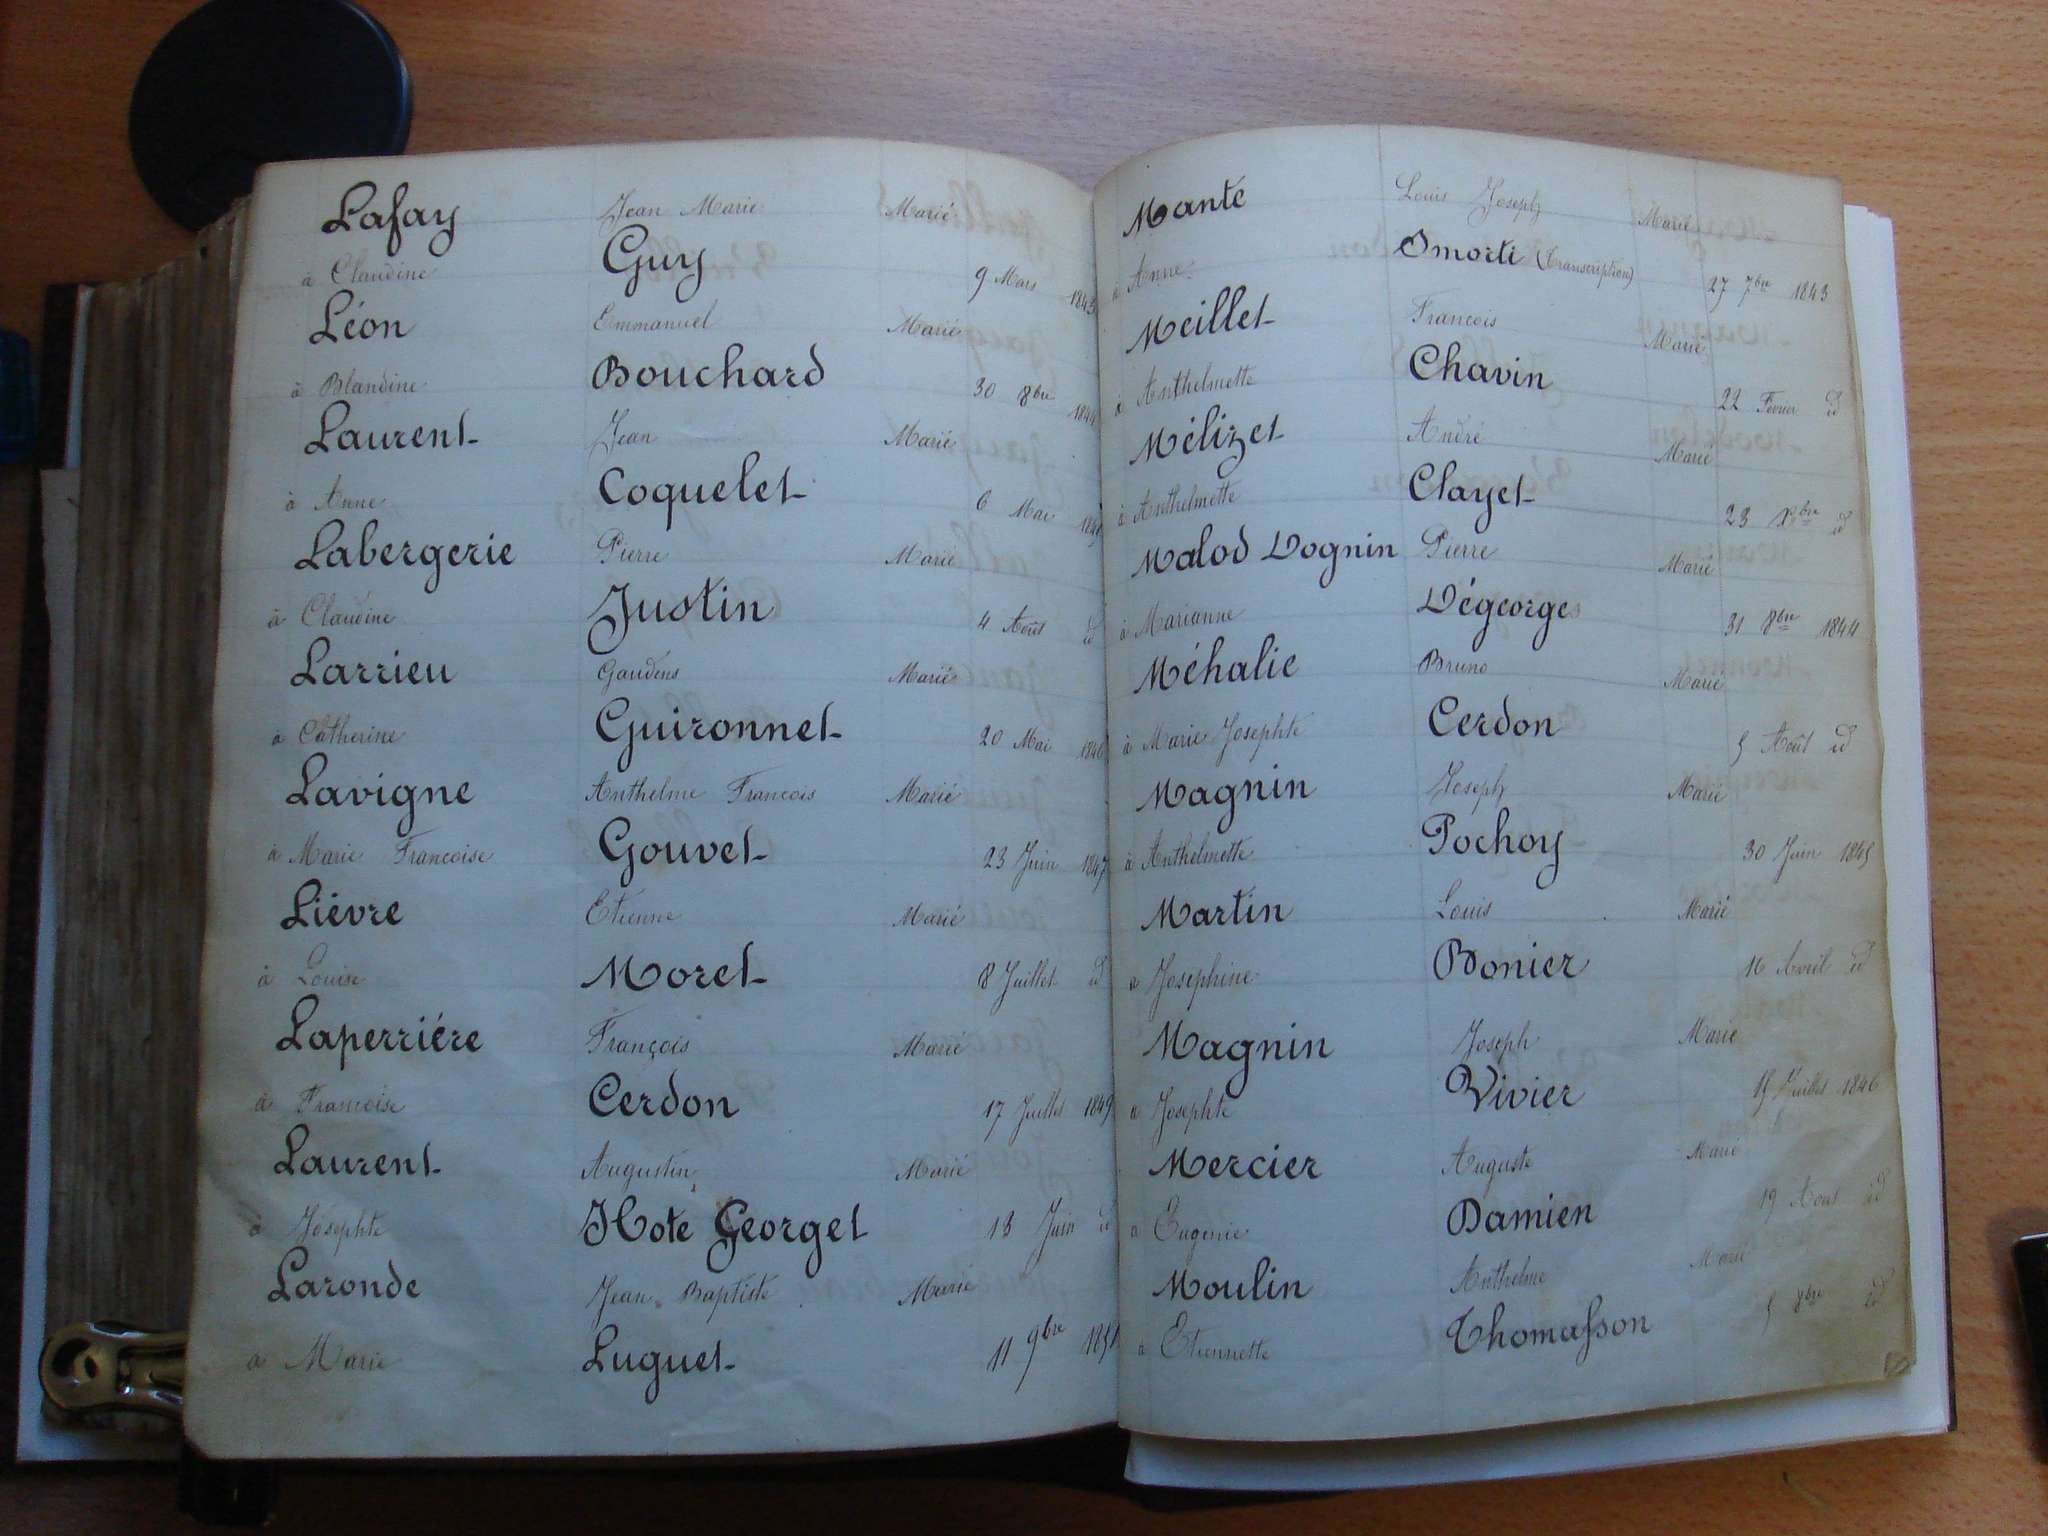 Lafay Jean Marie Marié
à Claudine Guy 9 Mars 1843
Léon Emmanuel Marié
à Blandine Bouchard 30 8bre 1844
Laurent Jean Marié
à Anne Coquelet 6 Mai
Labergerie Pierre Marié
à Claudine Justin 4 Août id
Larrieu Gaudens Marié
à Catherine Guironnet 20 Mai 1846
Lavigne Anthelme Francois Marié
à Marie Francoise Gouvet 23 Juin 1847
Liévre Etienne Marié
à Louise Moret 8 Juillet id
Laperriére François Marié
à Francoise Cerdon 17 Juillet 1849
Laurent Augustin Marié
à Josephte Hote Georget 18 Juin id
Laronde Jean Baptiste Marié
à Marie Luguet 11 9bre 1851
Mante Louis Joseph Marié
à Anne Omorti (Transcription) 27 7bre 1843
Meillet Francois Marié
à Anthelmette Chavin 22 Février id
Mélizet André Marié
à Anthelmette Clayet 23 Xbre id
Malod Dognin Pierre Marié
à Marianne Dégeorges 31 8bre 1844
Méhalie Bruno Marié
à Marie Josephte Cerdon 5 Août id
Magnin Joseph Marié
à Anthelmette Pochoy 30 Juin 1845
Martin Louis Marié
a Josephine Bonier 16 Avril id
Magnin Joseph Marié
a Josephte Vivier 15 Juillet 1846
Mercier Auguste Marié
a Eugenie Damien 19 Aout id
Moulin Anthelme Marié
à Etiennette Thomasson 5 8bre id